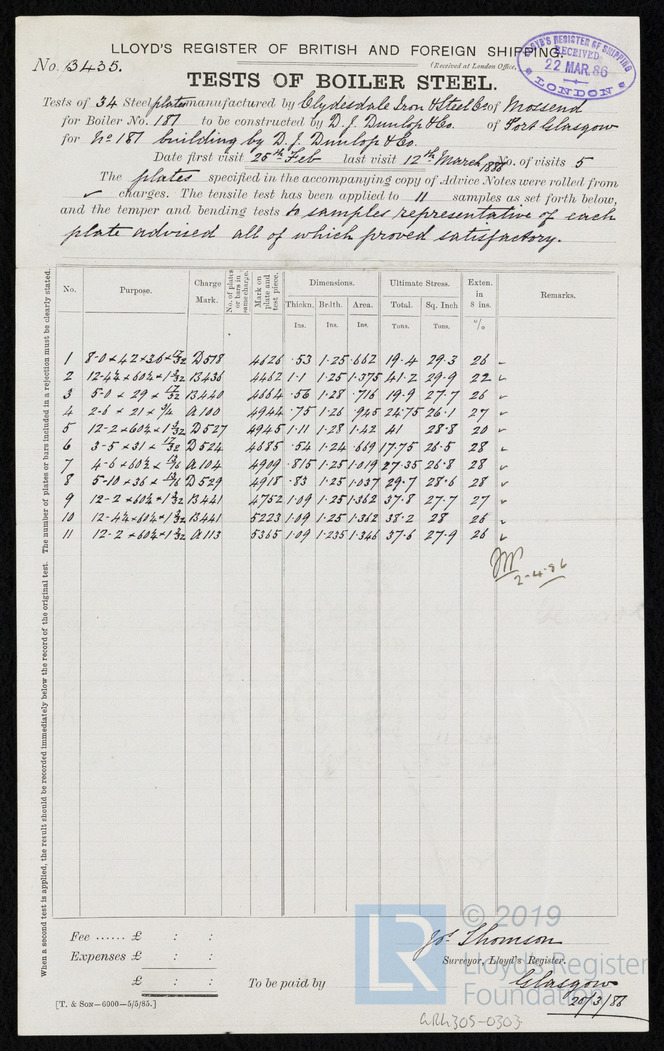 LLOYD'S REGISTER OF BRITISH AND FOREIGN SHIPPING.
LLOYD'S REGISTER OF SHIPPING
RECEIVED
22 MAR. 86
LONDON
No. 3435.
(Received at London Office,
TESTS OF BOILER STEEL.
Tests of 34 Steel plates manufactured by Clydesdale Iron & Steel Co of Mossend
for Boiler No. 187 to be constructed by D. J. Dunlop & Co. of Port Glasgow
for No 187 building by D. J. Dunlop & Co.
Date first visit 25th Feb last visit 12th March 1886 No. of visits 5
The plates specified in the accompanying copy of Advice Notes were rolled from
✓ charges. The tensile test has been applied to 11 samples as set forth below,
and the temper and bending tests to samples representative of each
plate advised all of which proved satisfactory.
When a second test is applied, the result should be recorded immediately below the record of the original test. The number of plates or bars included in a rejection must be clearly stated.
No. Purpose. Charge Mark. No. of plates or bars in same charge. Mark on plate and test piece. Dimensions. Ultimate Stress. Exten. in 8 ins. Remarks.
Thickn. Brdth. Area. Total. Sq. Inch
Ins. Ins. Ins. Tons. Tons. %
1 8-0 x 42 x 36 x 17/32 D518 4626 .53 1.25 .662 19.4 29.3 26 ✓
2 12-4½ x 60½ x 1 3/32 B436 4462 1.1 1.25 1.375 41.2 29.9 22 ✓
3 5-0 x 29 x 17/32 B440 4664 .56 1.28 .716 19.9 27.7 26 ✓
4 2-6 x 21 x 3/4 a100 4944 .75 1.26 .945 24.75 26.1 27 ✓
5 12-2 x 60½ x 1 3/32 D527 4945 1.11 1.28 1.42 41 28.8 20 ✓
6 3-5 x 31 x 17/32 D524 4685 .54 1.24 .669 17.75 26.5 28 ✓
7 4-6 x 60½ x 13/16 a104 4909 .815 1.25 1.019 27.35 26.8 28 ✓
8 5-10 x 36 x 13/16 D529 4918 .83 1.25 1.037 29.7 28.6 28 ✓
9 12-2 x 60½ x 1 3/32 B441 4752 1.09 1.25 1.362 37.8 27.7 27 ✓
10 12-4½ x 60½ x 1 3/32 B441 5223 1.09 1.25 1.362 38.2 28 26 ✓
11 12-2 x 60½ x 1 3/32 a113 5365 1.09 1.235 1.346 37.6 27.9 26 ✓
2-4-86
Fee ...... £ : :
Expenses £ : :
£ : :
To be paid by
Jos. Thomson
Surveyor, Lloyd's Register.
Glasgow
20/3/86
[T. & SON—6000—5/5/85.]
LR
© 2019
Lloyd's Register
Foundation
LRF305-0303